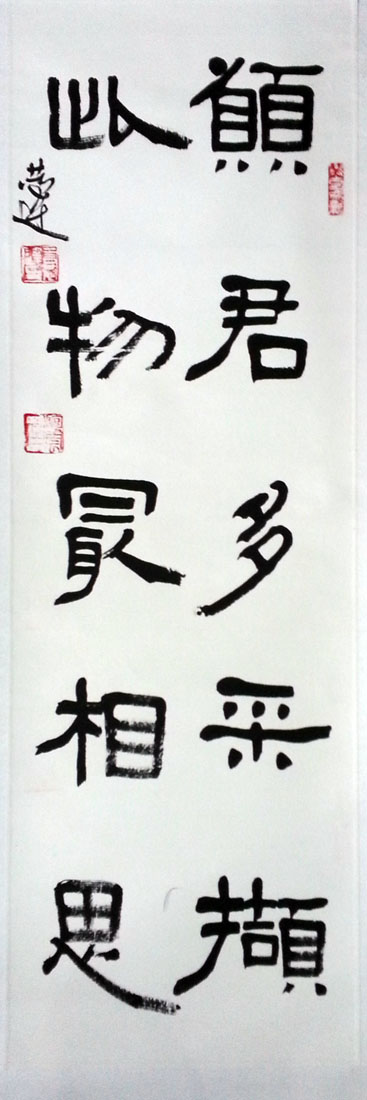 願君多采擷
此物最相思